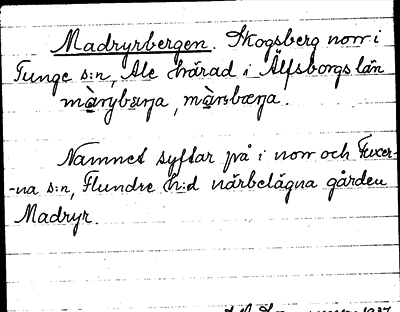 Madryrbergen. Skogsberg norr i
Tunge s:n, Ale härad i Älfsborgs län
màrybærja, màrsbærja.
Namnet syftar på i norr och Fuxer-
-na s:n, Flundre h:d närbelägna gården
Madryr.
1937